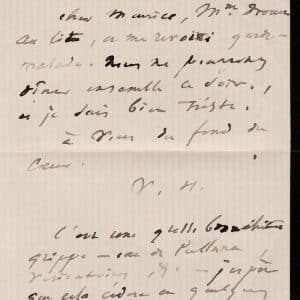 cher Maurice, Mme Drouet
au lit, et me revoici garde-
malade. Nous ne pourrons
dîner ensemble ce soir,
et je suis bien triste.
à vous du fond du
cœur.
V. H.
C'est une
grippe — de
— j'espère
que cela cédera en quelques